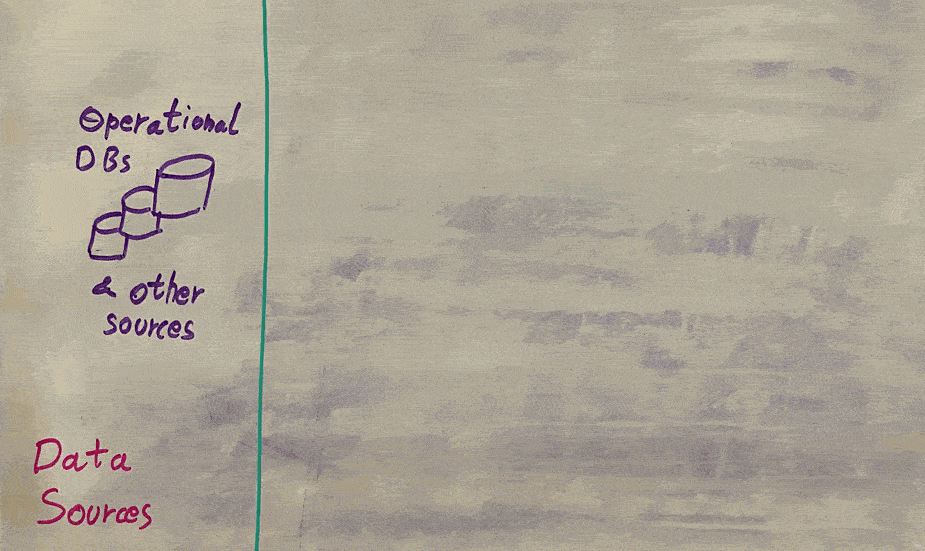 Operational
DBs
& other
sources
Data
Sources